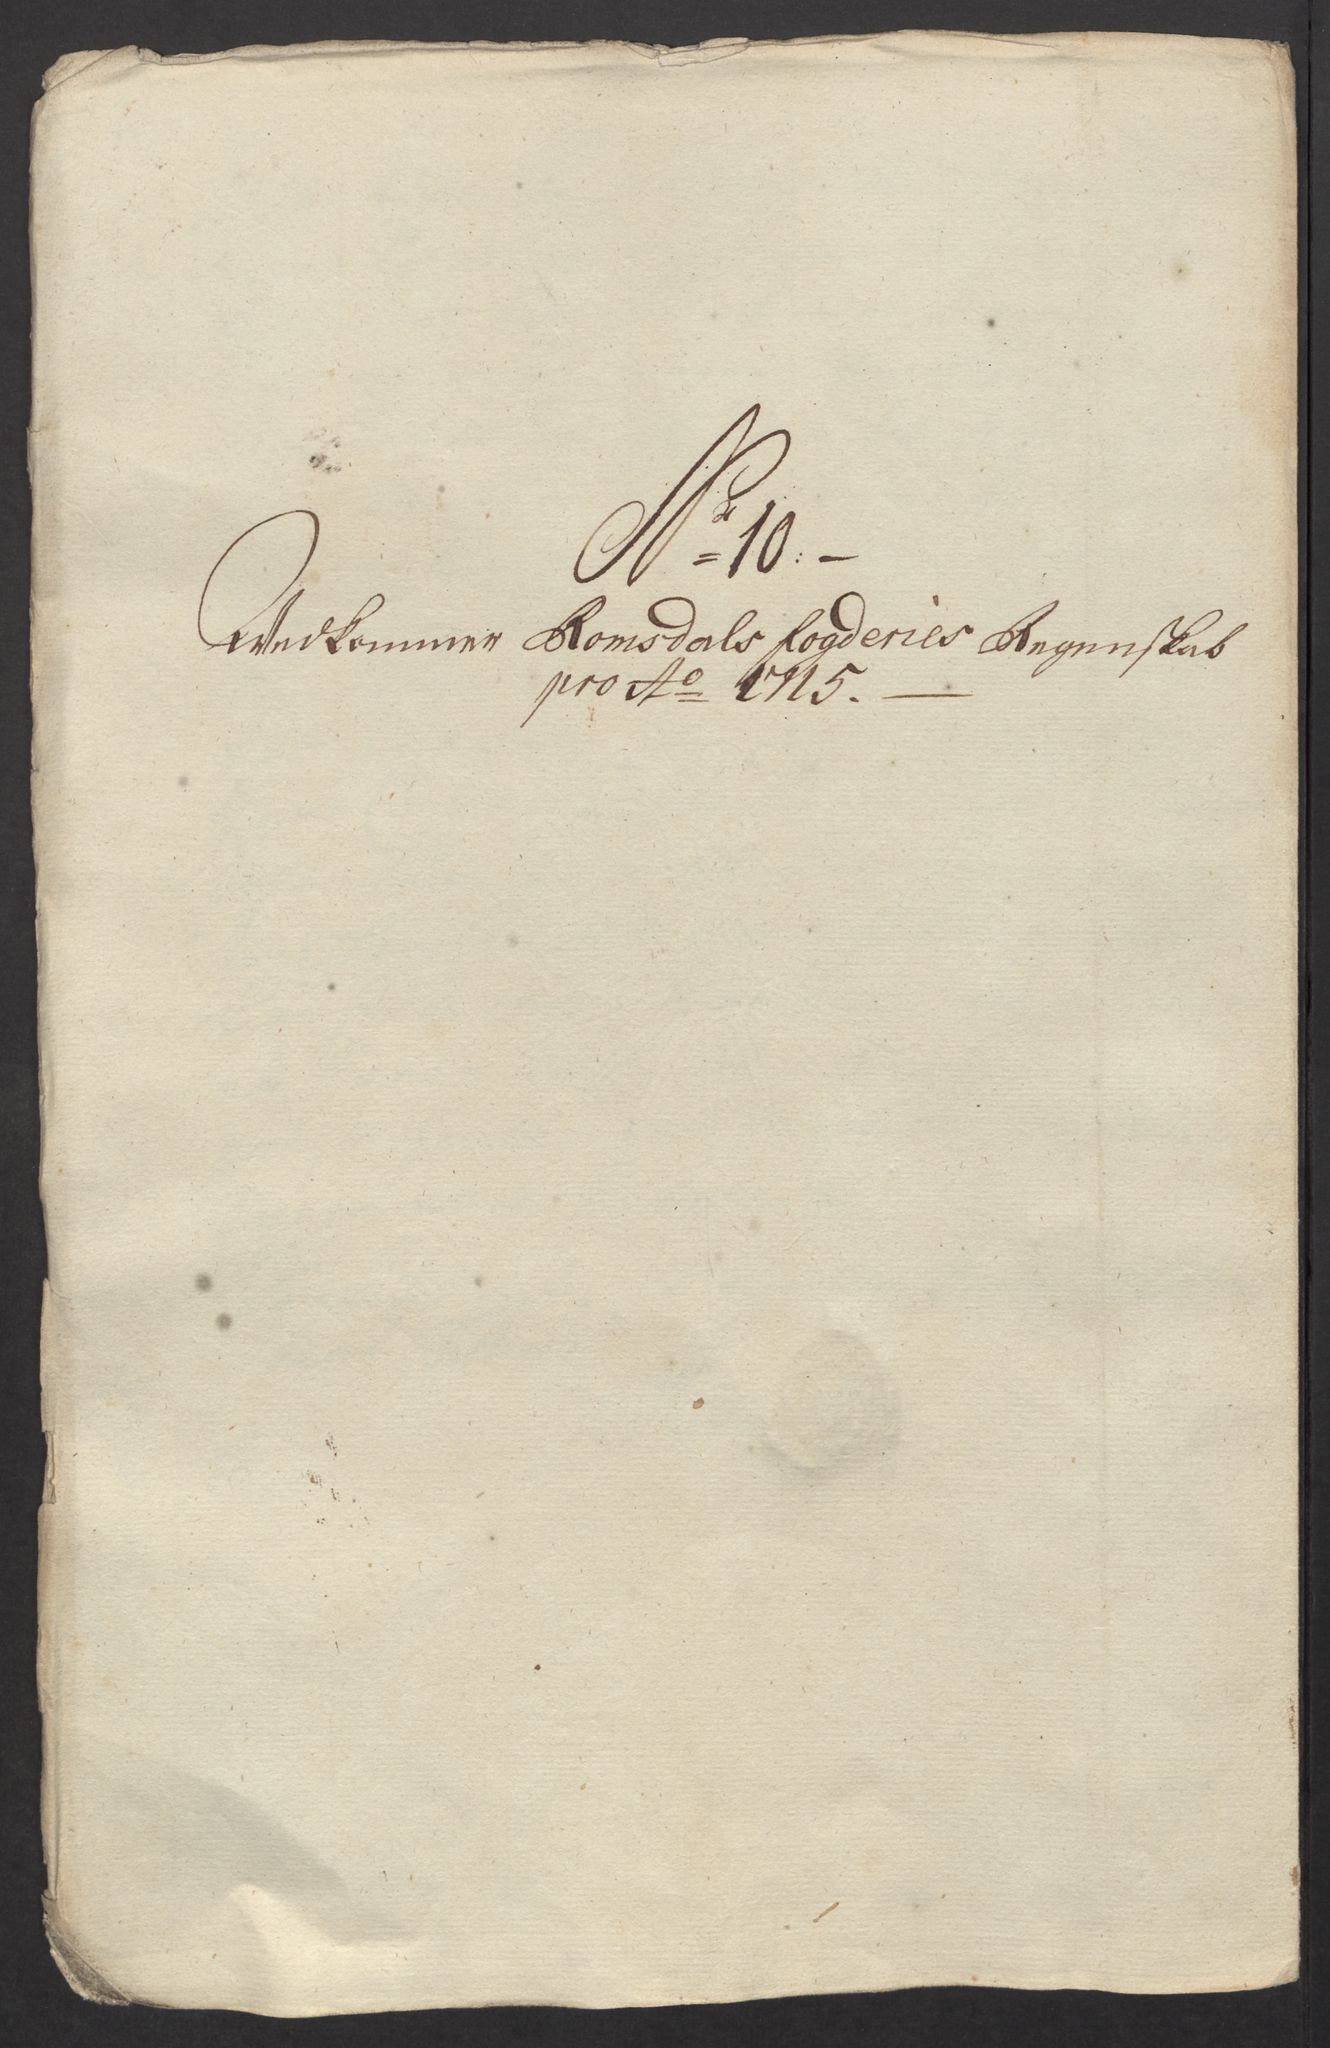 Nr 10. -
Vedkommer Romsdals fogderies Regenskab
pro Ao 1715. —